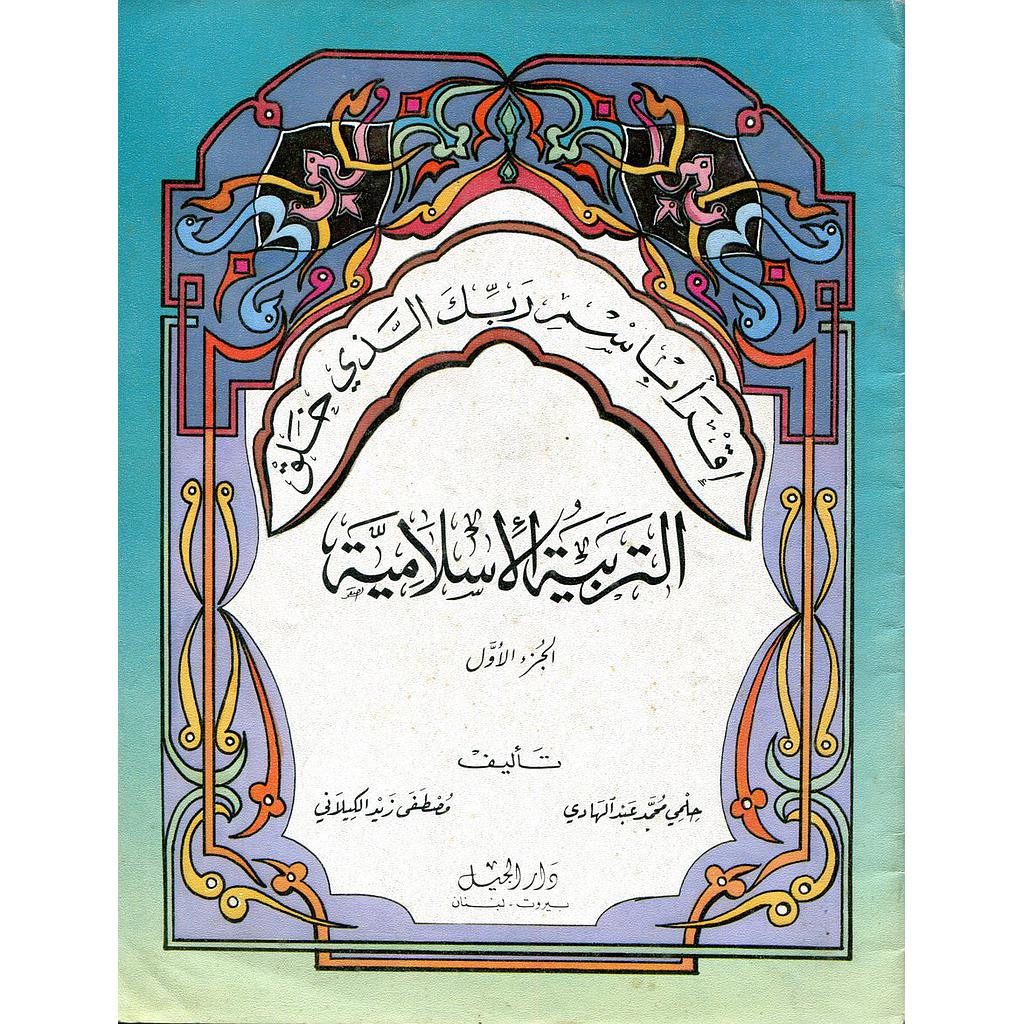 إِقْرَأْ بِاسْمِ رَبِّكَ الَّذِي خَلَقَ
التربيَةُ الإسلاميَّة
الجُزء الأوَّل
تَأليفْ
حِلمي محمَّد عَبْد الهَادي
مُصْطفَى زَيْد الكِيلاَني
دَار الجيْل
بيروت - لبنان